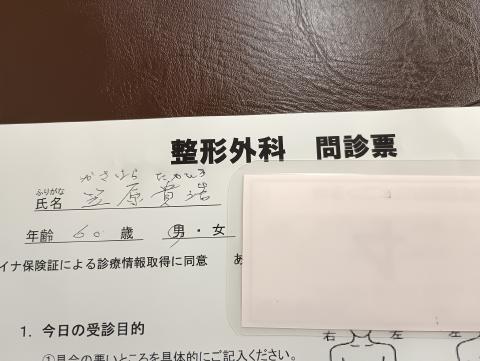 整形外科 問診票
かさはら たかひろ
ふりがな
氏名 笠原貴浩
年齢 60 歳 男・女
イナ保険証による診療情報取得に同意 あ
1. 今日の受診目的
右 左 左
①具合の悪いところを具体的にご記入ください。